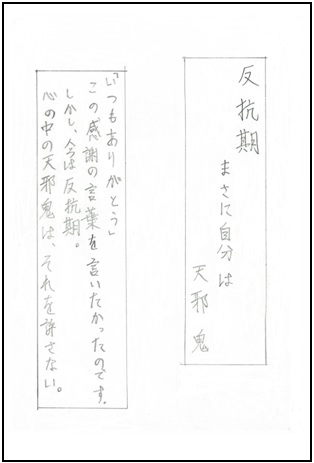 反抗期
まさに自分は
天邪鬼
「いつもありがとう」
この感謝の言葉を言いたかったのです。
しかし、今は反抗期。
心の中の天邪鬼は、それを許さない。